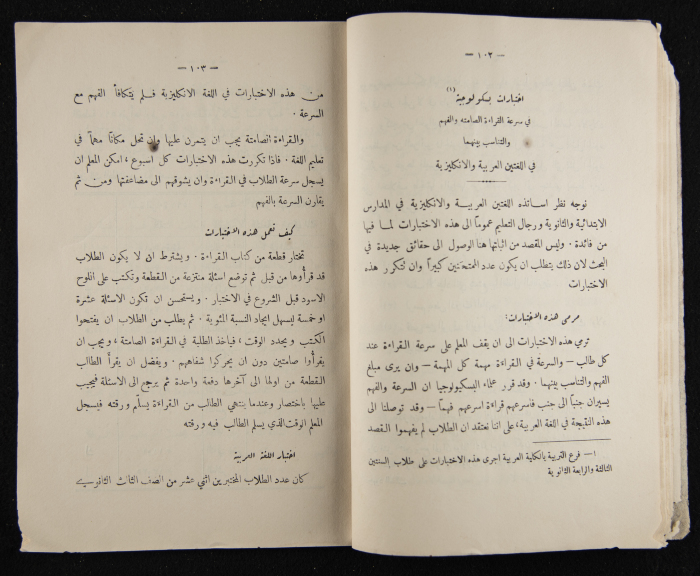 — ١٠٢ —
اختبارات بسكولوجية (١)
في سرعة القراءة الصامتة والفهم
والتناسب بينهما
في اللغتين العربية والانكليزية
نوجه نظر اساتذه اللغتين العربية والانكليزية في المدارس
الابتدائية والثانوية ورجال التعليم عموماً الى هذه الاختبارات لما فيها
من فائدة . وليس المقصد من اثباتها هنا الوصول الى حقائق جديدة في
البحث لان ذلك يتطلب ان يكون عدد الممتحنين كبيراً وان تتكرر هذه
الاختبارات
مرمى هذه الاختبارات:
ترمي هذه الاختبارات الى ان يقف المعلم على سرعة القراءة عند
كل طالب — والسرعة في القراءة مهمة كل المهمة — وان يرى مبلغ
الفهم والتناسب بينهما . وقد قرر علماء البسكيولوجيا ان السرعة والفهم
يسيران جنباً الى جنب فاسرعهم قراءة اسرعهم فهماً — وقد توصلنا الى
هذه النتيجة في اللغة العربية، على اننا نعتقد ان الطلاب لم يفهموا القصد
١ — فرع التربية بالكلية العربية اجرى هذه الاختبارات على طلاب السنتين
الثالثة والرابعة الثانوية
— ١٠٣ —
من هذه الاختبارات في اللغة الانكليزية فلم يتكافأ الفهم مع
السرعة .
والقراءة الصامتة يجب ان يتمرن عليها وان تحل مكاناً مهماً في
تعليم اللغة . فاذا تكررت هذه الاختبارات كل اسبوع ، امكن المعلم ان
يسجل سرعة الطلاب في القراءة وان يشوقهم الى مضاعفتها ومن ثم
يقارن السرعة بالفهم
كيف تعمل هذه الاختبارات
تختار قطعة من كتاب القراءة . ويشترط ان لا يكون الطلاب
قد قرأوها من قبل ثم توضع اسئلة منتزعة من القطعة وتكتب على اللوح
الاسود قبل الشروع في الاختبار . ويستحسن ان تكون الاسئلة عشرة
او خمسة ليسهل ايجاد النسبة المئوية . ثم يطلب من الطلاب ان يفتحوا
الكتب ويحدد الوقت ، فياخذ الطلبة في القراءة الصامتة ، ويجب ان
يقرأوا صامتين دون ان يحركوا شفاههم . ويفضل ان يقرأ الطالب
القطعة من اولها الى آخرها دفعة واحدة ثم يرجع الى الاسئلة فيجيب
عليها باختصار وعندما ينتهي الطالب من القراءة يسلّم ورقته فيسجل
المعلم الوقت الذي يسلم الطالب فيه ورقته
اختبار اللغة العربية
كان عدد الطلاب المختبرين اثني عشر من الصف الثالث الثانوي